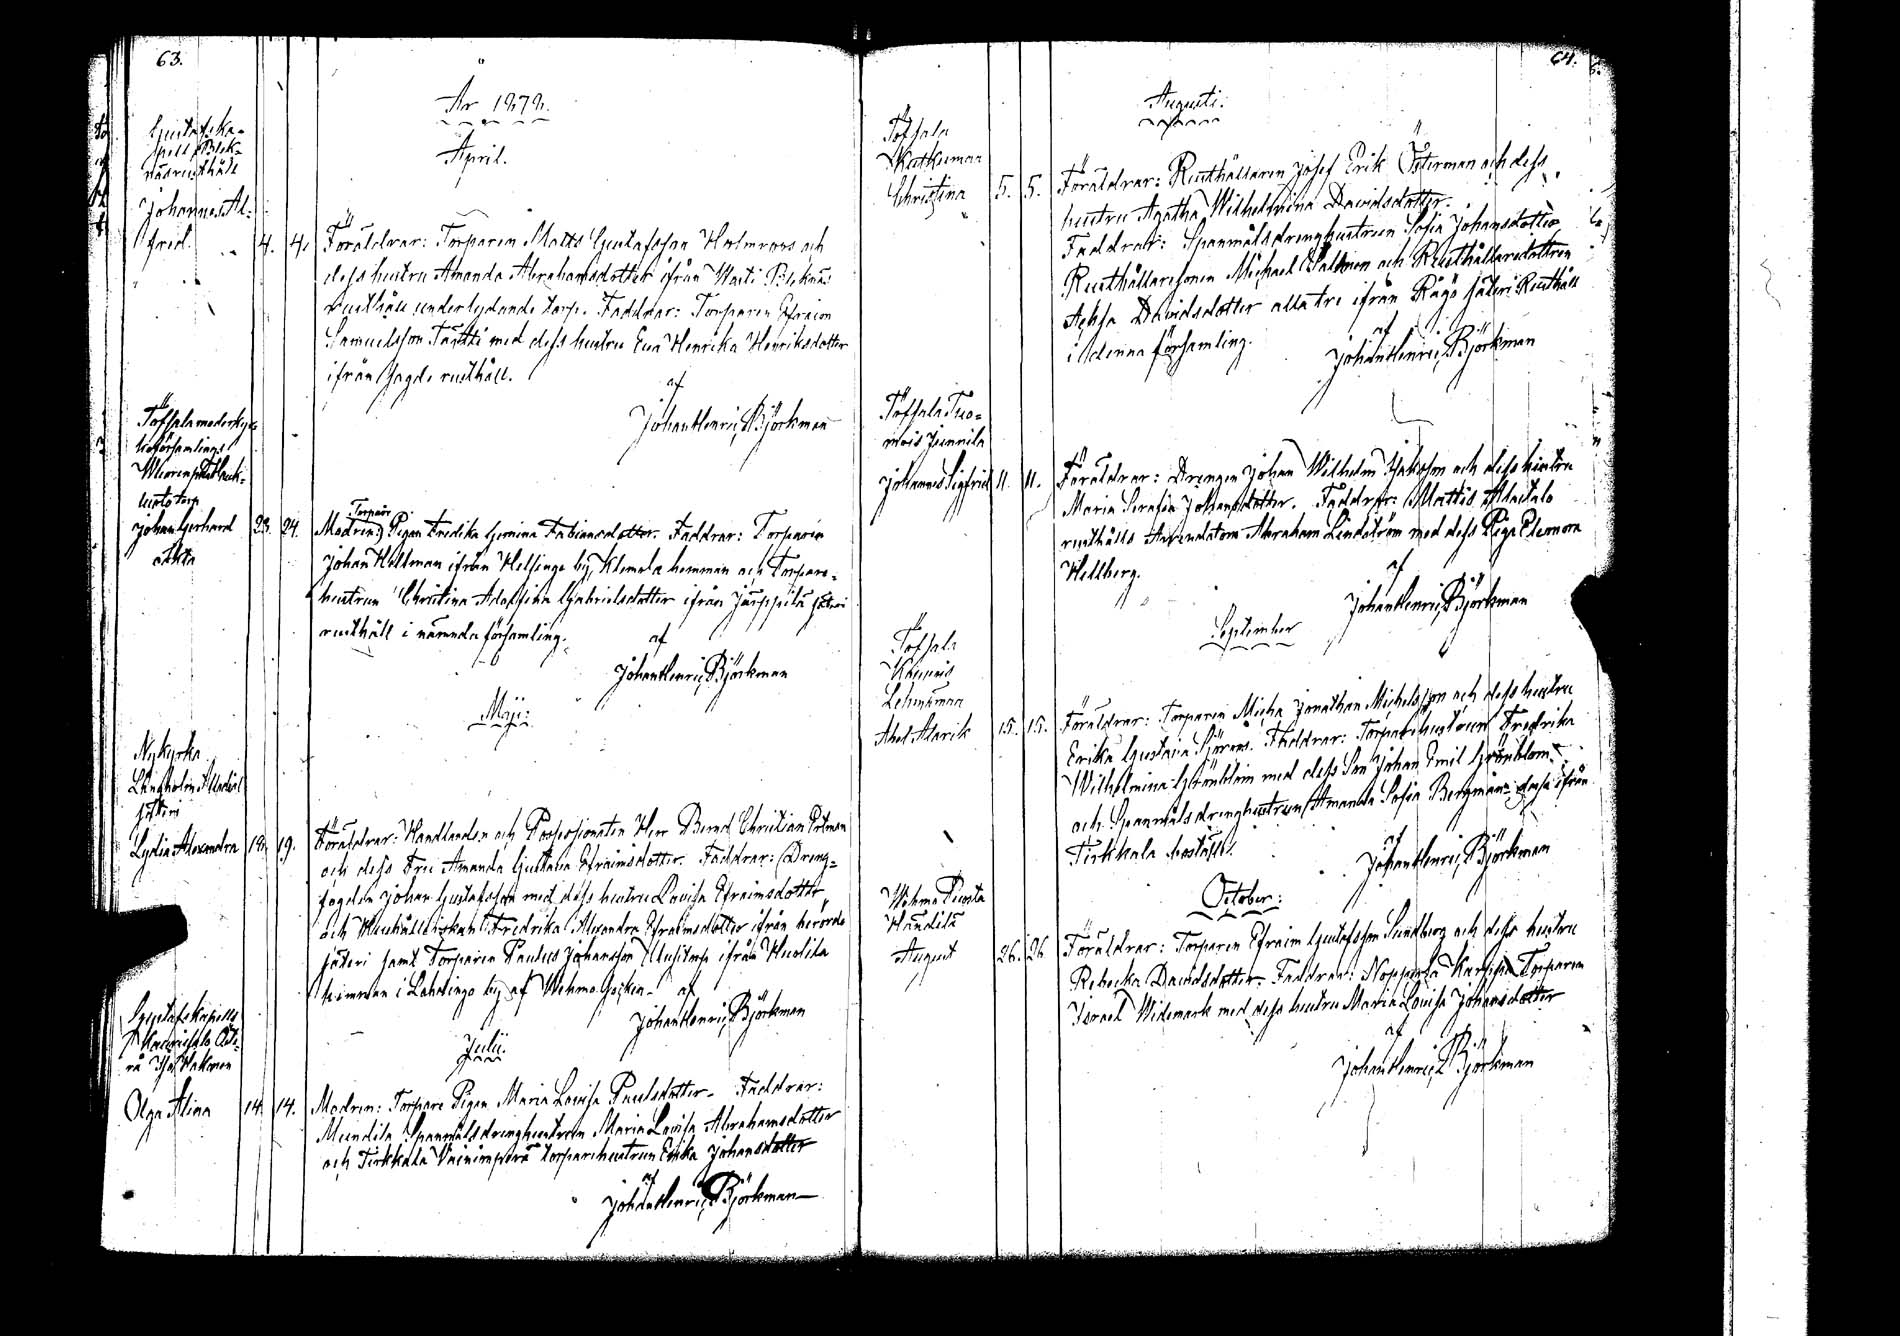 63.
År 1878.
April.
Gustafs ka-
pell Blek-
näs rusthåll
Johannes Al-
fred. 4. 4. Föräldrar: Torparen Matts Gustafsson Holmroos och
dess hustru Amanda Abrahamsdotter ifrån Bleknäs
rusthåll underlydande torp. Faddrar: Torparen Efraim
Samuelsson Tartti med dess hustru Eva Henrika Henriksdotter
ifrån Sagde rusthåll.
af
Johan Henric Björkman
Töfsala moderkyr-
koförsamlings
torp
Johan Gerhard 23. 24. Modren: Torpare Pigan Fredika Gemina Fabiansdotter. Faddrar: Torparen
oäkta
Johan Hellman ifrån Helsinge by, Klemola hemman och Torpare-
hustrun Christina Adolfina Gabrielsdotter ifrån Järppilä säteri
rusthåll i nämnda församling.
af
Johan Henric Björkman
Maji:
Nykyrka
Långholm Allodial
säteri
Lydia Alexandra 18. 19. Föräldrar: Handlanden och Possessionaten Herr Bernd Christian Ertman
och dess Fru Amanda Gustava Efraimsdotter. Faddrar: Dreng-
fogden Johan Gustafsson med dess hustru Lovisa Efraimsdotter
och Hushållerskan Fredrika Alexandra Efraimsdotter ifrån berörde
säteri samt Torparen Paulus Johansson Uusitorp ifrån
hemman i Lahdingo by af Wehmo Socken. af
Johan Henric Björkman
Julii.
Gustafs kapells
Olga Alina 14. 14. Modren: Torpare Pigan Maria Lovisa Paulsdotter. Faddrar:
Mundila Spanmålsdrenghustrun Maria Lovisa Abrahamsdotter
och Tirkkala Vainionperä torparehustrun Erika Johansdotter
af
Johan Henric Björkman
64.
Augusti:
Töfsala
Christina 5. 5. Föräldrar: Rusthållaren Josef Erik Österman och dess
hustru Agatha Wilhelmina Davidsdotter.
Faddrar: Spanmålsdrenghustrun Sofia Johansdotter
Rusthållaresonen Michael Salonen och Rusthållaredottren
Achsa Davidsdotter alla tre ifrån Rågö säteri Rusthåll
i denna församling.
af
Johan Henric Björkman
Töfsala Tuo-
mois Junnila
Johannes Sigfrid 11. 11. Föräldrar: Drengen Johan Wilhelm Isaksson och dess hustru
Maria Serafia Johansdotter. Faddrar: Mattis Alastalo
rusthålls Arrendatorn Abraham Lindström med dess Piga Eleonora
Hellberg.
af
Johan Henric Björkman
September
Töfsala
Abel Alarik 15. 15. Föräldrar: Torparen Micha Jonathan Michelsson och dess hustru
Erika Gustava Sjöroos. Faddrar: Torparehustrun Fredrika
Wilhelmina Grönblom med dess Son Johan Emil Grönblom
och Spanmålsdrenghustrun Amanda Sofia Bergman dessa ifrån
Tirkkala boställe.
af
Johan Henric Björkman
October:
Wehmo Puosta
Händilä
August 26. 26. Föräldrar: Torparen Efraim Gustafsson Sundberg och dess hustru
Rebecka Davidsdotter. Faddrar: Nopperla Karppi Torparen
Israel Widemark med dess hustru Maria Lovisa Johansdotter
af
Johan Henric Björkman